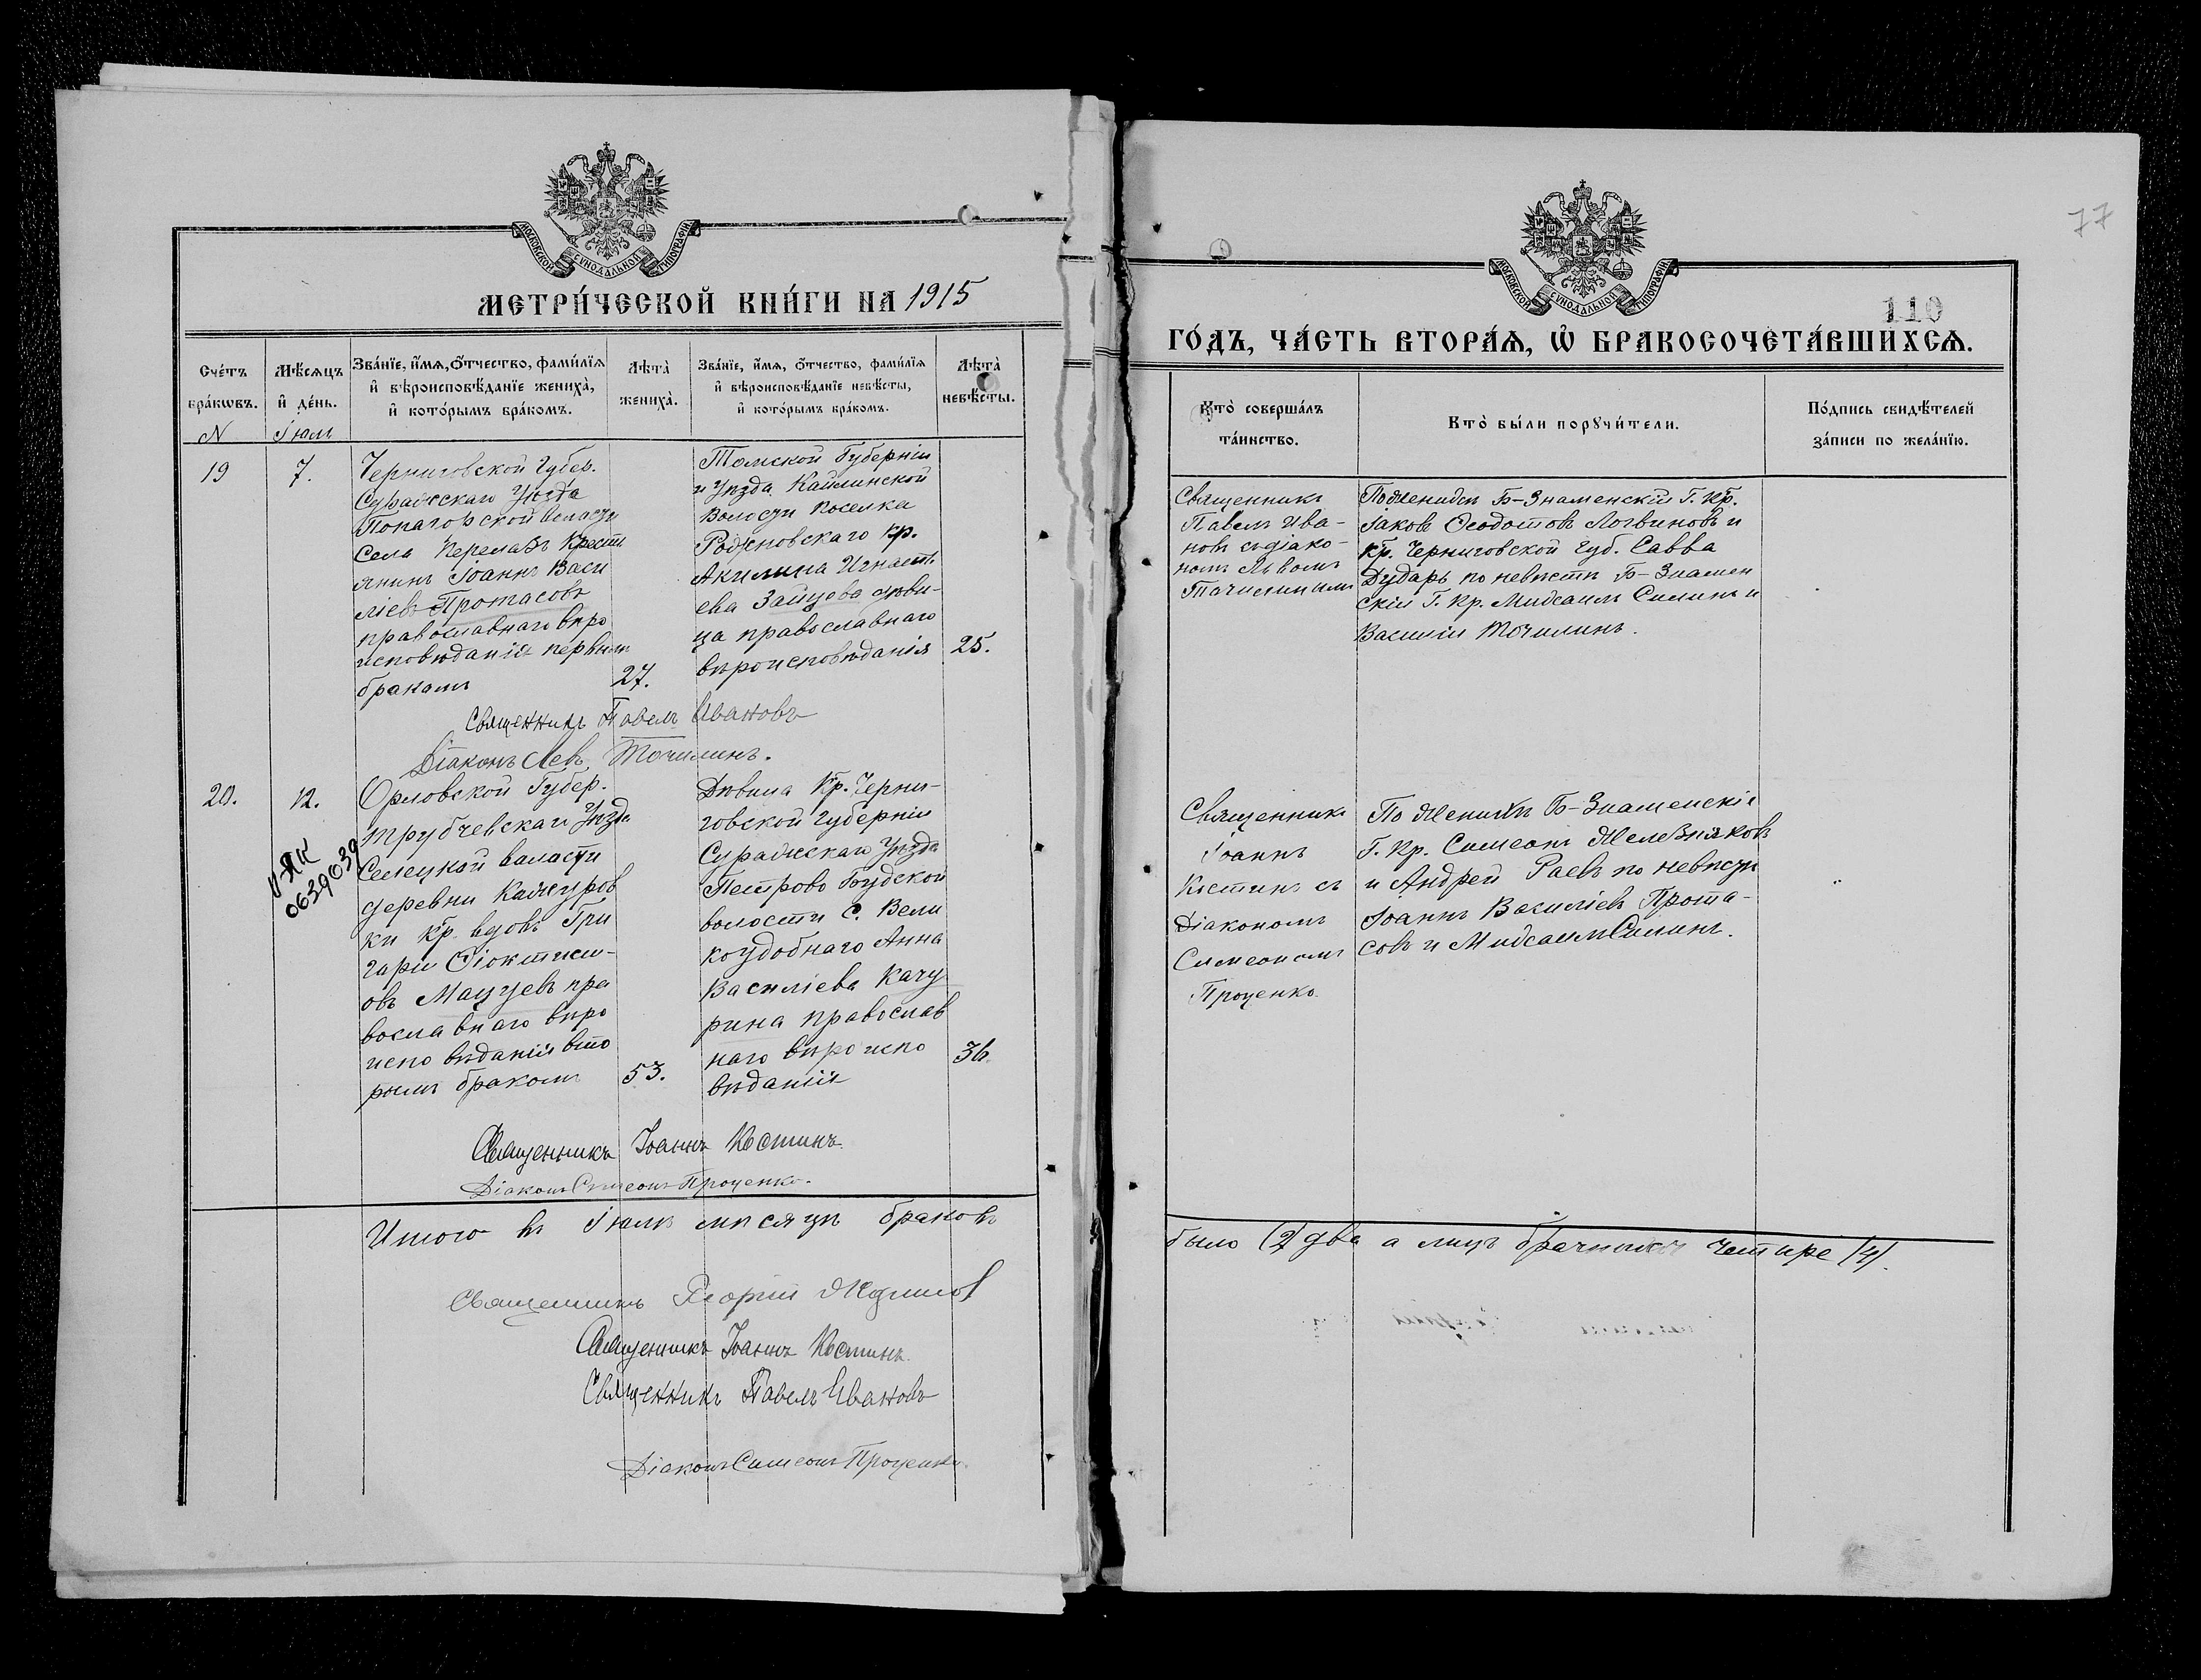 77
110
МОСКОВСКОЙ СУНОДАЛЬНОЙ ТИПОГРАФІИ
МЕТРИ́ЧЕСКОЙ КНИ́ГИ НА 1915
Сче́тъ бра́кѡвъ.
Мѣ́сяцъ и҆ де́нь.
Зва́нїе, и҆́мѧ, ѻ҆́тчество, фами́лїѧ
и҆ вѣроисповѣ́данїе жениха̀,
и҆ кото́рымъ бра́комъ.
Лѣта̀ жениха̀.
Зва́нїе, и҆́мѧ, ѻ҆́тчество, фами́лїѧ
и҆ вѣроисповѣ́данїе невѣ́сты,
и҆ кото́рымъ бра́комъ.
Лѣта̀ невѣ́сты.
N
Іюль
19
7.
Черниговской Губер.
Суражскаго Уѣзда
Попагорской Веласти
Села Перелазъ Крестъ
янинъ Іоаннъ Васи
ліевъ Протасовъ
православнаго вѣро
исповѣданія первымъ
бракомъ
27.
Томской Губерніи
и Уѣзда Кайлинской
Волости поселка
кр.
Акилина Игнать
ева Зайцева дѣви-
ца православнаго
вѣроисповѣданія
25.
Священникъ Павелъ Ивановъ
Діаконъ Левъ Точилинъ.
20.
12.
V-ЯК
0639039
Орловской Губер.
Трубчевскаго Уѣзда
Селецкой валасти
деревни Кажуров
ки кр. вдовъ Гри
горій Ѳіоктисто-
овъ Мацуевъ пра
вославнаго вѣро
исповѣданія вто
рымъ бракомъ
53.
Дѣвица Кр. Черни-
говской Губерніи
Суражскаго Уѣзда
Петрово Будской
волости с. Вели
коудобнаго Анна
Василіева Качу
рина православ
наго вѣроиспо
вѣданія
36.
Священникъ Іоаннъ Костинъ
Діаконъ Симеонъ Проценко.
Итого въ Іюлѣ мѣсяцѣ браковъ
Священникъ Георгій
Священникъ Іоаннъ Костинъ
Священникъ Павелъ Ивановъ
Діаконъ Симеонъ Проценко.
МОСКОВСКОЙ СУНОДАЛЬНОЙ ТИПОГРАФІИ
ГО́ДЪ, ЧА́СТЬ ВТОРА́Ѧ, Ѡ҆ БРАКОСОЧЕТА́ВШИХСѦ.
Кто̀ соверша́лъ
та́инство.
Кто̀ бы́ли порꙋчи́тели.
По́дпись свидѣ́телей
за́писи по жела́нїю.
Священникъ
Павелъ Ива-
новъ съ діако-
номъ Львомъ
Точилинымъ
По женихѣ Б-Знаменскій Г. Кр.
Іаковъ Ѳеодотовъ Логвиновъ и
Кр. Черниговской Губ. Савва
Дударь по невѣстѣ Б-Знамен
скій Г. Кр. Мисаилъ Силинъ и
Василій Точилинъ.
Священникъ
Іоаннъ
Костинъ съ
Діакономъ
Симеономъ
Проценко
По женихѣ Б-Знаменскіе
Г. Кр. Симеонъ Железняковъ
и Андрей Раевъ по невѣсти
Іоаннъ Василіевъ Прота-
совъ и Мисаилъ Силинъ.
было (2) два а лицъ брачныхъ четыре (4).